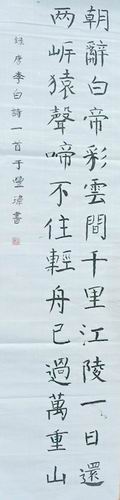 朝辭白帝彩雲間千里江陵一日還
两岍猿聲啼不住輕舟已過萬重山
錄唐李白詩一首于瑩瑋書